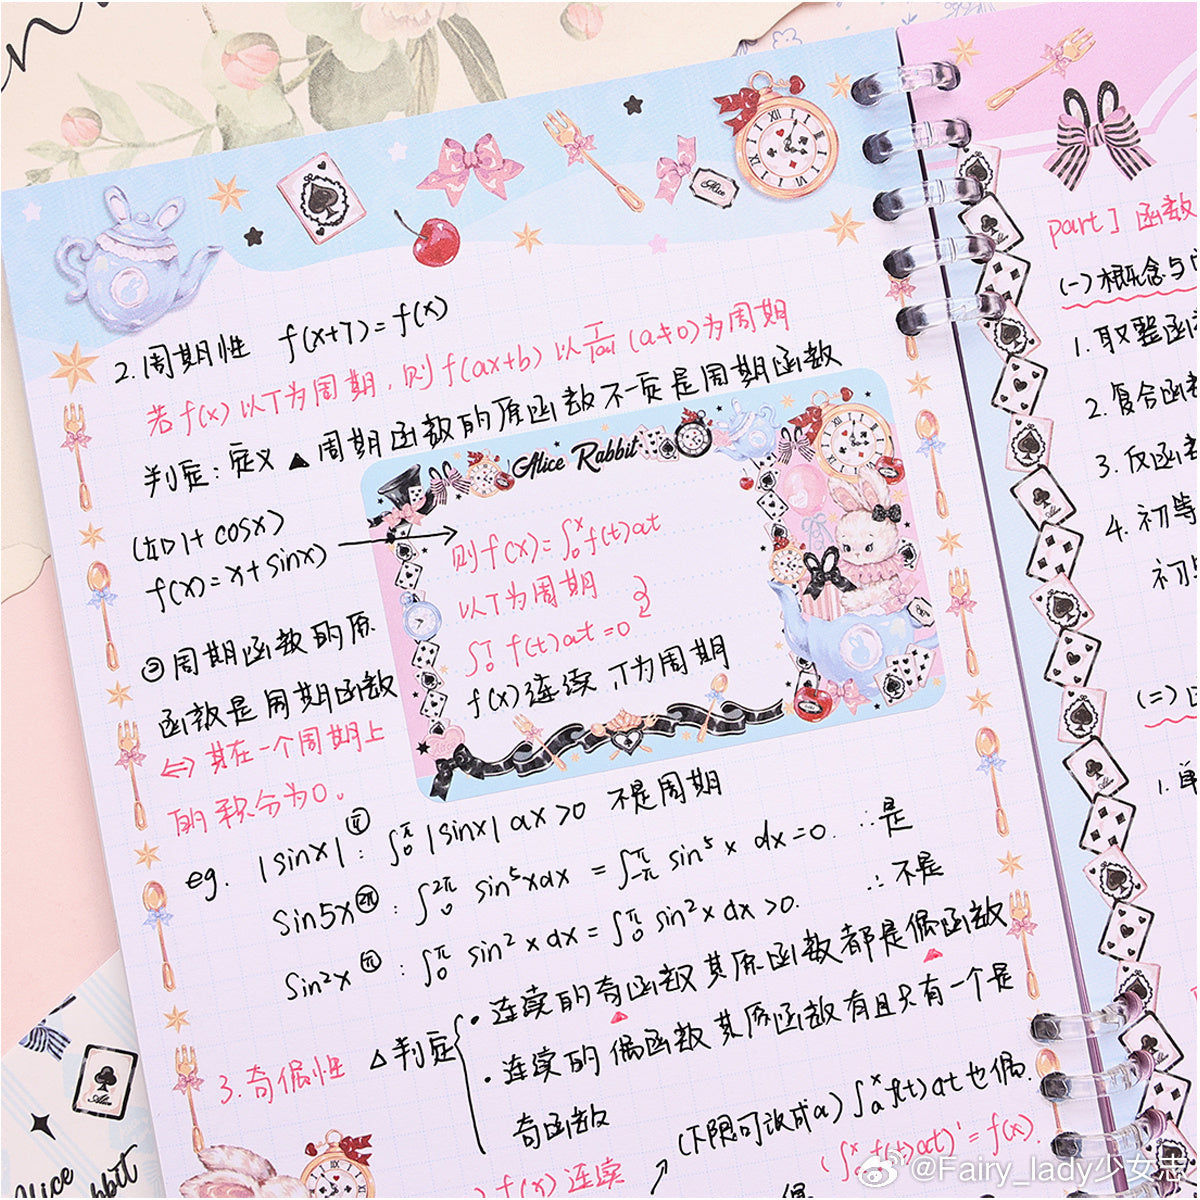 2.周期性 f(x+T)=f(x)
若f(x)以T为周期,则f(ax+b)以T/|a|(a≠0)为周期
判定:定义 ▲周期函数的原函数不一定是周期函数
Alice Rabbit
(如1+cosx)
f(x)=x+sinx)
则f(x)=∫₀ˣf(t)dt
以T为周期
∫₀ᵀf(t)dt=0
f(x)连续 T为周期
②周期函数的原
函数是周期函数
⇔其在一个周期上
的积分为0。
eg. |sinx| π : ∫₀^π |sinx| dx>0 不是周期
sin5x 2π : ∫₀^2π sin⁵xdx = ∫₋π^π sin⁵x dx=0. ∴是
sin²x π : ∫₀^π sin²xdx = ∫₀^π sin²xdx>0. ∴不是
3.奇偶性 △判定
·连续的奇函数其原函数都是偶函数
·连续的偶函数其原函数有且只有一个是
奇函数
(下限可改成a) ∫ₐˣf(t)dt也偶.
f(x)连续
f(t)dt)'=f(x).
偶
part 1 函数
(一)概念与
1.取整函
2.复合函
3.反函
4.初等
初
(二)
1.单
Alice
Alice
@Fairy_lady少女志